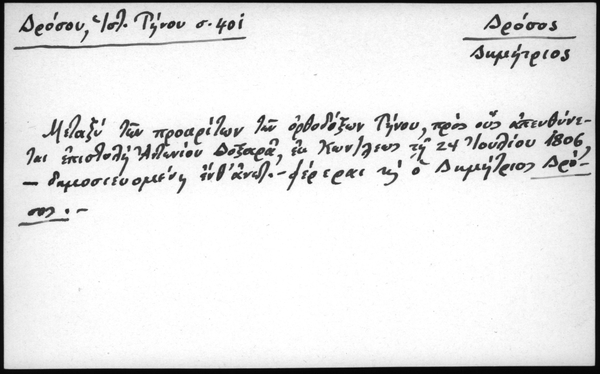 Δρόσου, Ἱστ. Τήνου σ. 401
Δρόσος
Δημήτριος
Μεταξὺ τῶν προκρίτων τῶν ὀρθοδόξων Τήνου, πρὸς οὓς ἀπευθύνε-
ται ἐπιστολὴ Ἀντωνίου Δοξαρᾶ, ἐκ Κων/λεως τῇ 24 Ἰουλίου 1806,
— δημοσιευομένη ἐνθ' ἀνωτ. — φέρεται κ̣ ὁ Δημήτριος Δρό-
σος. —